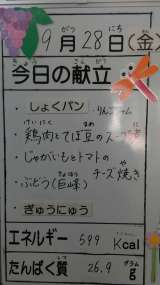 9月28日(金)
今日の献立
・しょくパン りんごジャム
・鶏肉とてぼ豆のスープ煮
・じゃがいもとトマトの
チーズ焼き
・ぶどう(巨峰)
・ぎゅうにゅう
エネルギー 599 Kcal
たんぱく質 26.9 g